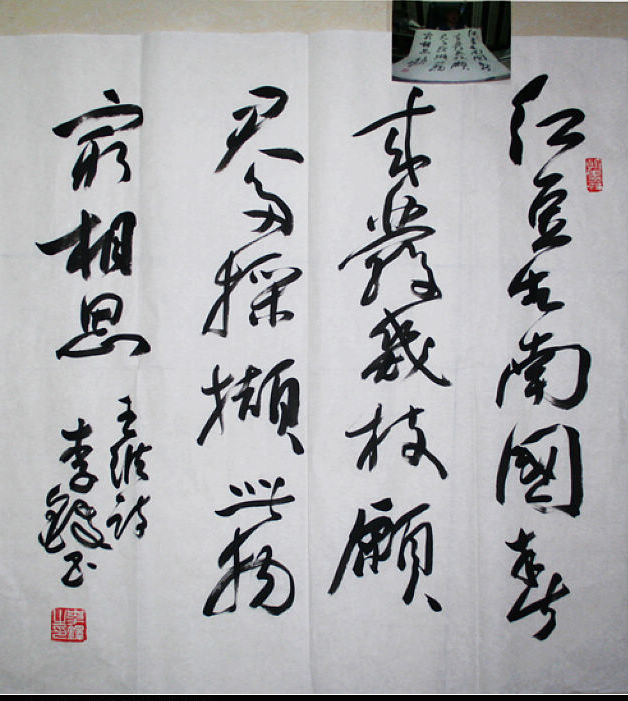 红豆生南國春
来發幾枝願
君多採擷此物
最相思
王維詩
李鐸书